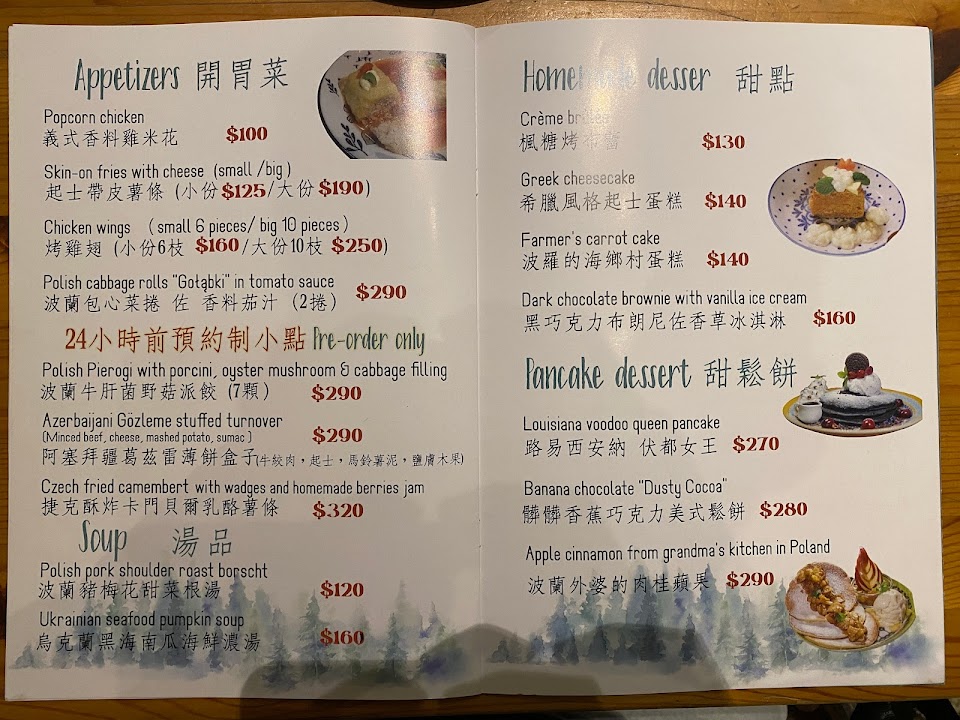 Appetizers 開胃菜
Popcorn chicken
義式香料雞米花 $100
Skin-on fries with cheese (small /big )
起士帶皮薯條 (小份$125/大份$190)
Chicken wings ( small 6 pieces/ big 10 pieces )
烤雞翅 (小份6枝 $160/大份10枝 $250)
Polish cabbage rolls "Gołąbki" in tomato sauce
波蘭包心菜捲 佐 香料茄汁 (2捲) $290
24小時前預約制小點 Pre-order only
Polish Pierogi with porcini, oyster mushroom & cabbage filling
波蘭牛肝菌野菇派餃 (7顆) $290
Azerbaijani Gözleme stuffed turnover
(Minced beef, cheese, mashed potato, sumac ) $290
阿塞拜疆葛茲雷薄餅盒子(牛絞肉，起士，馬鈴薯泥，鹽膚木果)
Czech fried camembert with wadges and homemade berries jam
捷克酥炸卡門貝爾乳酪薯條 $320
Soup 湯品
Polish pork shoulder roast borscht
波蘭豬梅花甜菜根湯 $120
Ukrainian seafood pumpkin soup
烏克蘭黑海南瓜海鮮濃湯 $160
desser 甜點
Crème
楓糖烤布蕾 $130
Greek cheesecake
希臘風格起士蛋糕 $140
Farmer's carrot cake
波羅的海鄉村蛋糕 $140
Dark chocolate brownie with vanilla ice cream
黑巧克力布朗尼佐香草冰淇淋 $160
Pancake dessert 甜鬆餅
Louisiana voodoo queen pancake
路易西安納 伏都女王 $270
Banana chocolate "Dusty Cocoa"
髒髒香蕉巧克力美式鬆餅 $280
Apple cinnamon from grandma's kitchen in Poland
波蘭外婆的肉桂蘋果 $290